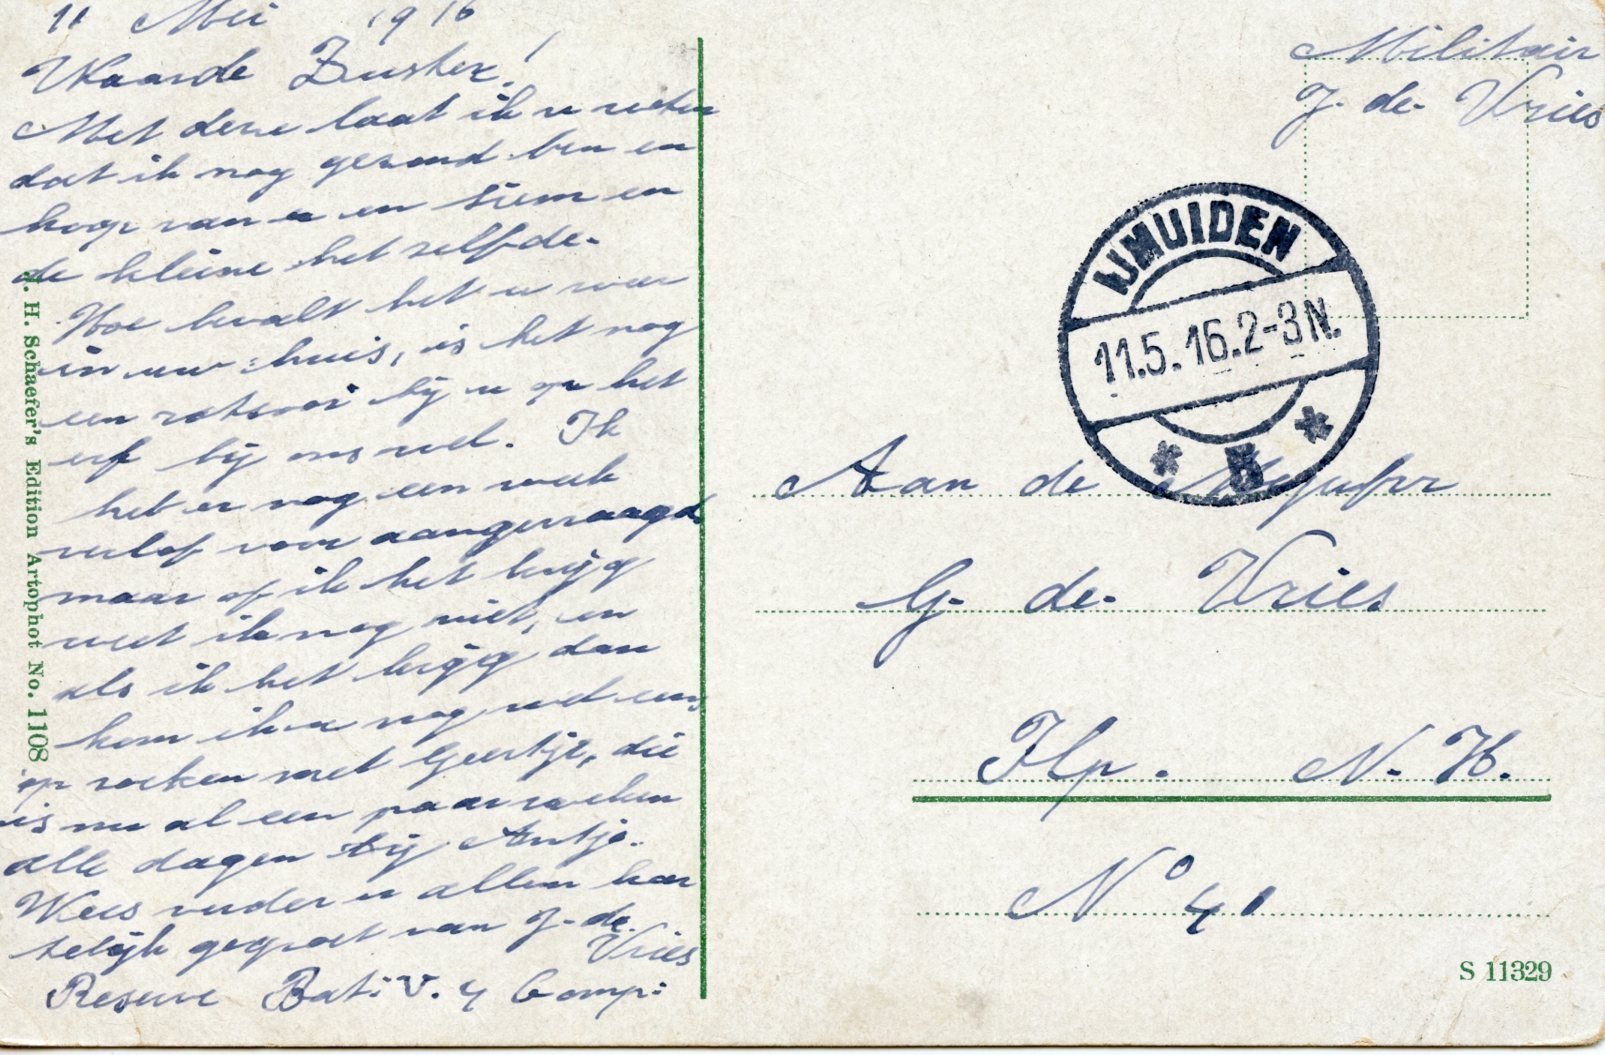 11 Mei 1916
Waarde Zuster!
Met deze laat ik u weten
dat ik nog gezond ben en
hoop van u en Siem en
de kleine het zelfde.
Hoe bevalt het u weer
in uw huis, is het nog
een rotzooi bij u op het
erf bij ons wel. Ik
het er nog een week
verlof voor aangevraagd
maar of ik het krijg
weet ik nog niet, en
als ik het krijg dan
kom ik u nog wel eens
op zoeken met Geertje, die
is nu al een paar weken
alle dagen bij Antje.
Wees verder u allen har
telijk gegroet van J. de.
Vries
Reserve Bat: V. 4 Comp:
J. H. Schaefer's Edition Artophot No. 1108
Militair
J. de. Vries
IJMUIDEN
11.5.16.2-3N.
* 5 *
Aan de Mejufr
G. de. Vries
Ilp. N. H.
No 41
S 11329